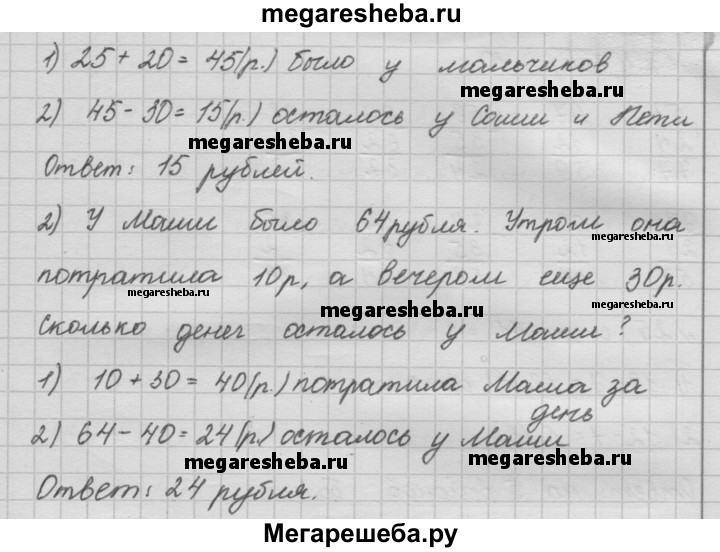 megaresheba.ru
1) 25 + 20 = 45(р.) было у мальчиков
megaresheba.ru
2) 45 - 30 = 15(р.) осталось у Саши и Пети
megaresheba.ru
Ответ: 15 рублей.
2) У Маши было 64 рубля. Утром она
megaresheba.ru
потратила 10р, а вечером еще 30р.
megaresheba.ru megaresheba.ru megaresheba.ru
Сколько денег осталось у Маши?
1) 10 + 30 = 40(р.) потратила Маша за
день
2) 64 - 40 = 24(р.) осталось у Маши
megaresheba.ru megaresheba.ru
Ответ: 24 рубля.
Мегарешеба.ру